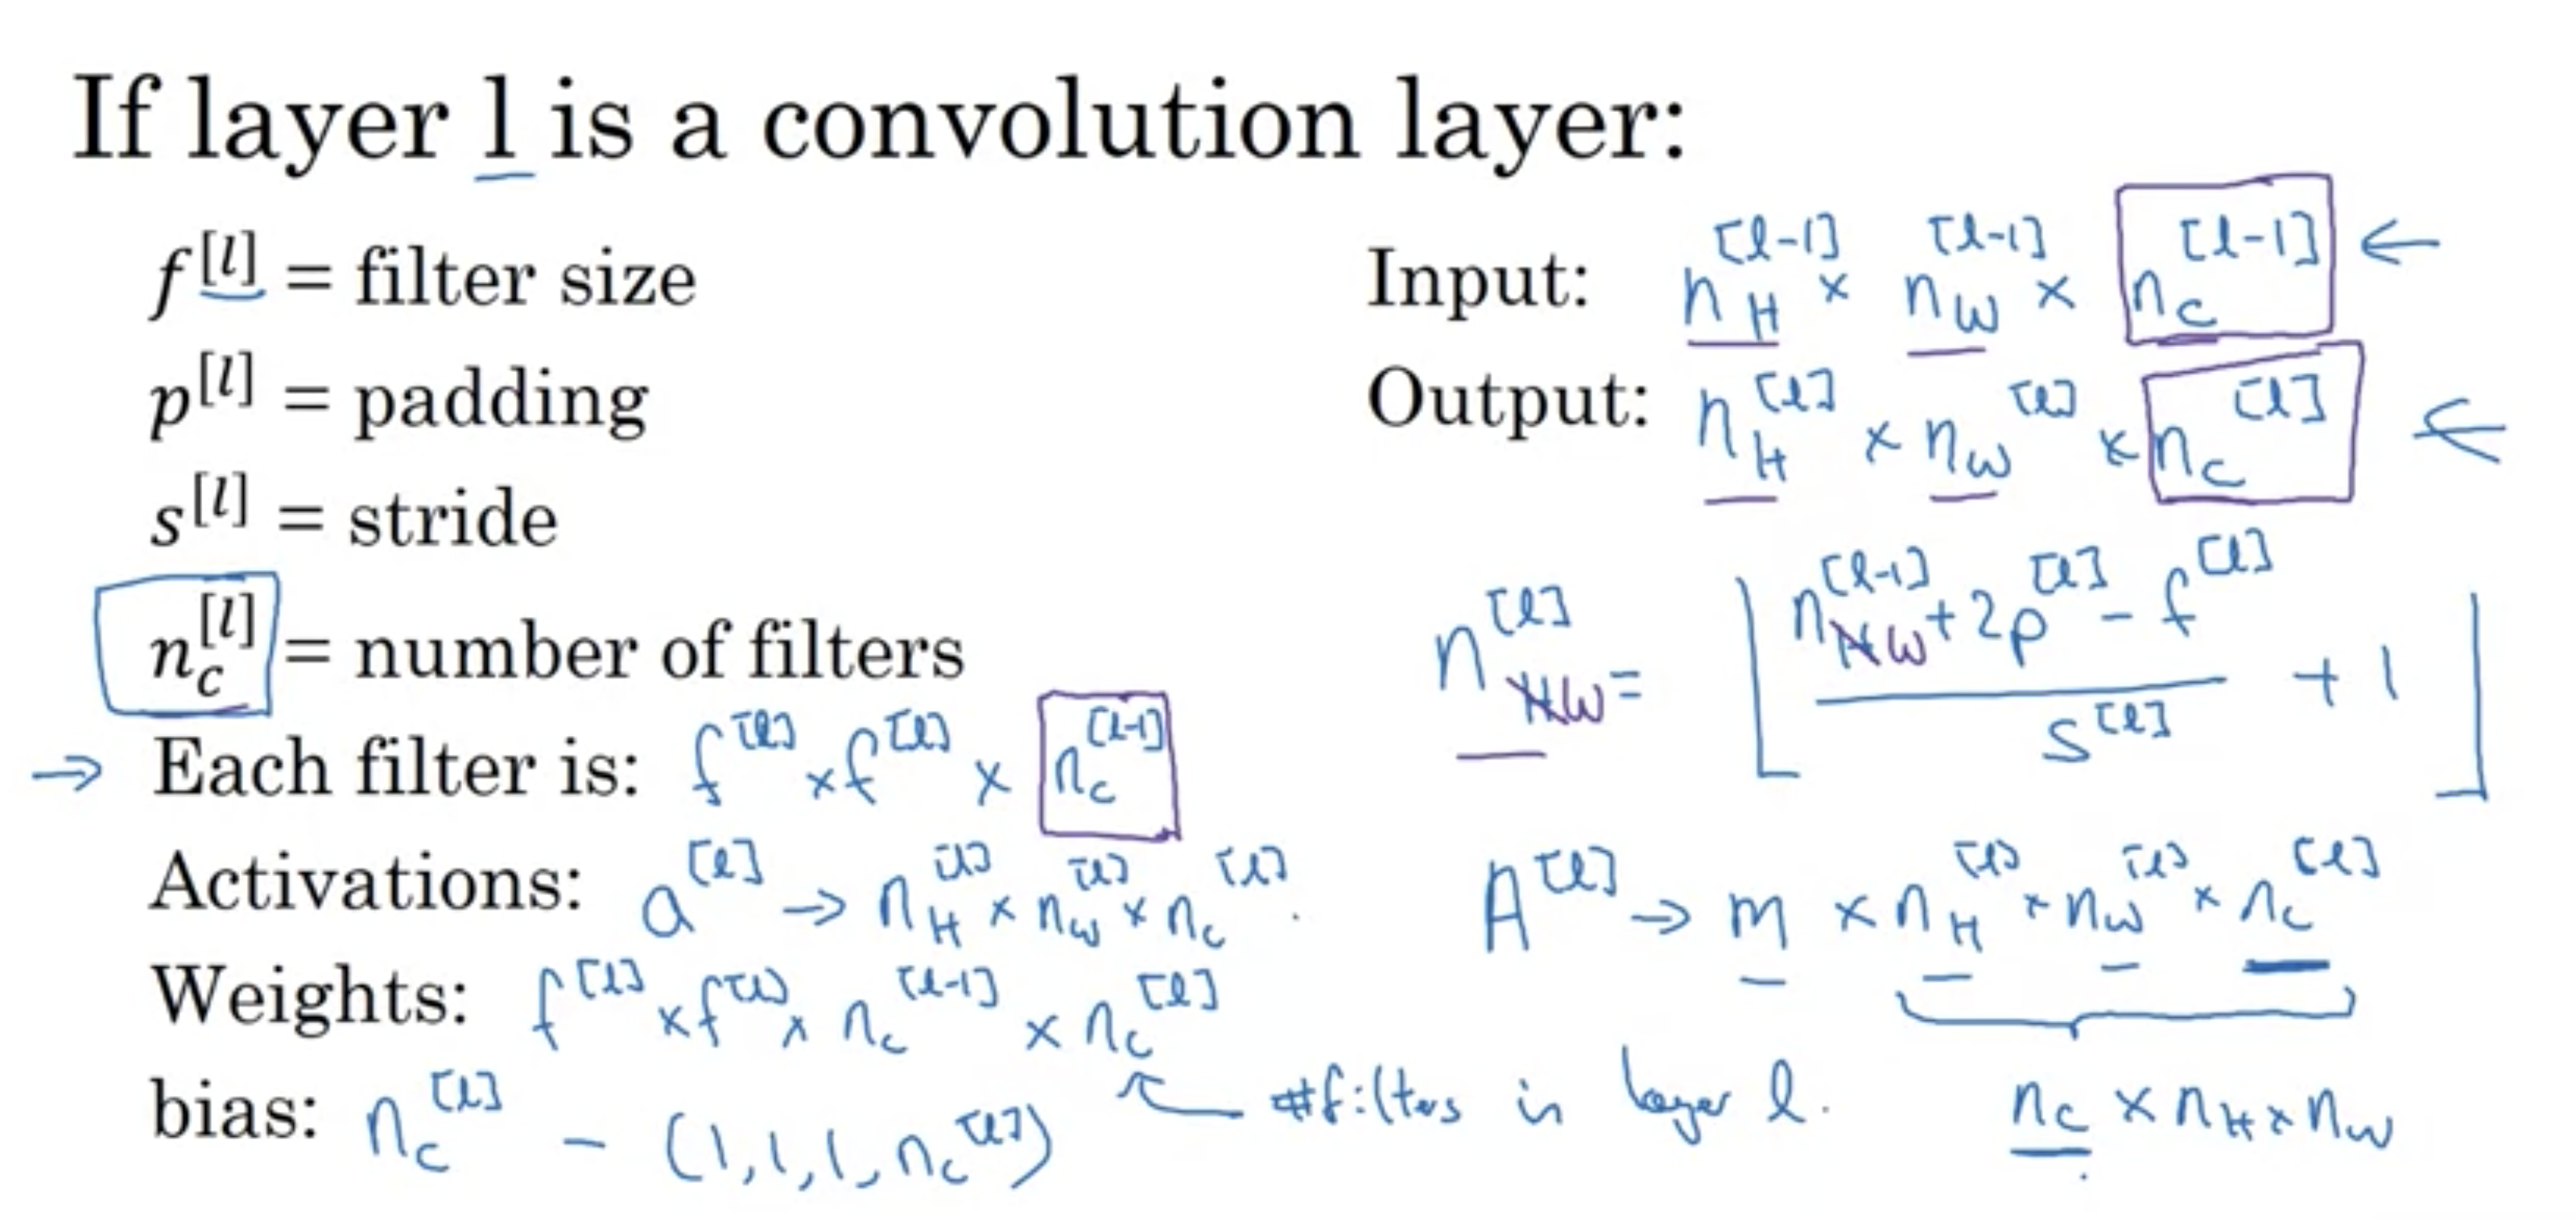 If layer l is a convolution layer:
f^[l] = filter size
p^[l] = padding
s^[l] = stride
n_c^[l] = number of filters
→ Each filter is: f^[l] × f^[l] × n_c^[l-1]
Activations: a^[l] → n_H^[l] × n_W^[l] × n_c^[l].
Weights: f^[l] × f^[l] × n_c^[l-1] × n_c^[l]
bias: n_c^[l] - (1,1,1,n_c^[l])
← #filters in layer l.
Input: n_H^[l-1] × n_W^[l-1] × n_c^[l-1] ←
Output: n_H^[l] × n_W^[l] × n_c^[l] ←
n_W^[l] = ⌊(n_W^[l-1] + 2p^[l] - f^[l]) / s^[l] + 1⌋
A^[l] → m × n_H^[l] × n_W^[l] × n_c^[l]
n_c × n_H × n_W